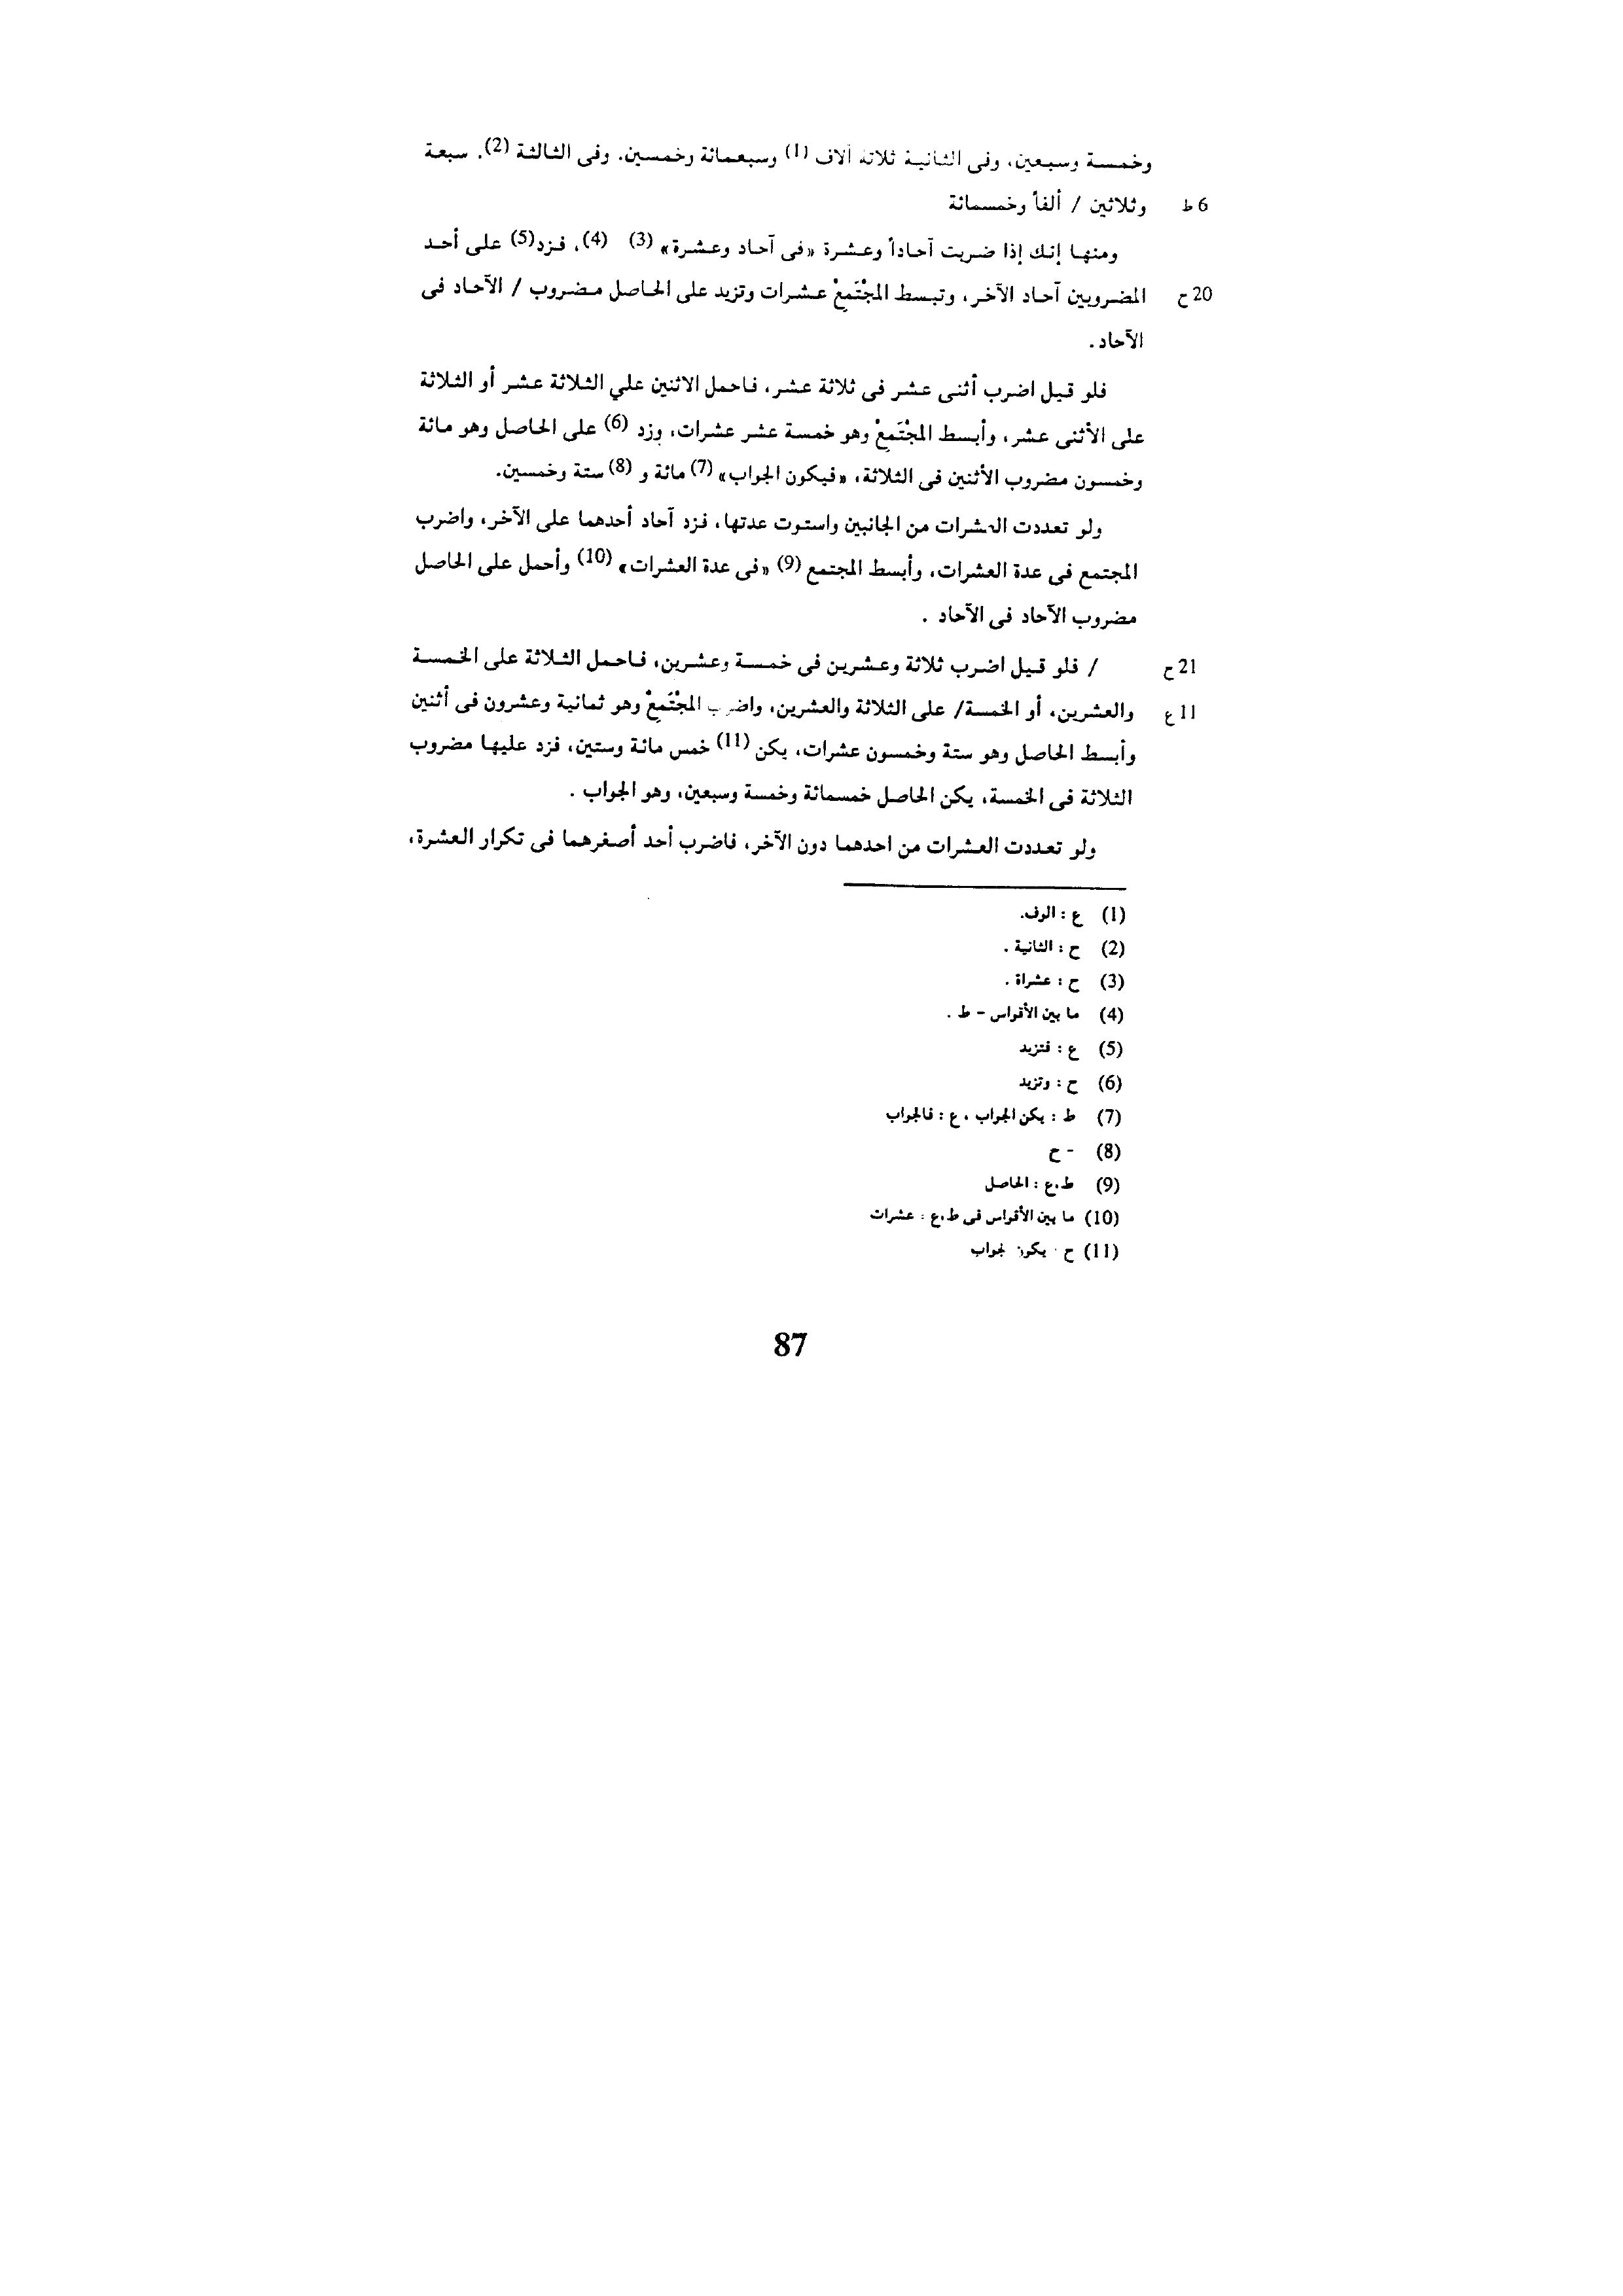 وخمسة وسبعين، وفى الثانية ثلاثة آلاف (1) وسبعمائة وخمسين. وفى الثالثة (2). سبعة
6 ط وثلاثين / ألفاً وخمسمائة
ومنها إنك إذا ضربت آحاداً وعشرة «فى آحاد وعشرة» (3) (4)، فزد(5) على أحد
20 ح المضروبين آحاد الآخر، وتبسط المجْتَمِعْ عشرات وتزيد على الحاصل مضروب / الآحاد فى
الآحاد.
فلو قيل اضرب أثنى عشر فى ثلاثة عشر، فاحمل الاثنين علي الثلاثة عشر أو الثلاثة
على الأثنى عشر، وأبسط المجْتَمِعْ وهو خمسة عشر عشرات، وزد (6) على الحاصل وهو مائة
وخمسون مضروب الأثنين فى الثلاثة، «فيكون الجواب» (7) مائة و (8) ستة وخمسين.
ولو تعددت العشرات من الجانبين واستوت عدتها، فزد آحاد أحدهما على الآخر، واضرب
المجتمع فى عدة العشرات، وأبسط المجتمع (9) «فى عدة العشرات» (10) وأحمل على الحاصل
مضروب الآحاد فى الآحاد .
21 ح / فلو قيل اضرب ثلاثة وعشرين فى خمسة وعشرين، فاحمل الثلاثة على الخمسة
11 ع والعشرين، أو الخمسة/ على الثلاثة والعشرين، واضرب المجْتَمِعْ وهو ثمانية وعشرون فى أثنين
وأبسط الحاصل وهو ستة وخمسون عشرات، يكن (11) خمس مائة وستين، فزد عليها مضروب
الثلاثة فى الخمسة، يكن الحاصل خمسمائة وخمسة وسبعين، وهو الجواب .
ولو تعددت العشرات من احدهما دون الآخر، فاضرب أحد أصغرهما فى تكرار العشرة،
(1) ع : الوف.
(2) ح : الثانية .
(3) ح : عشراة .
(4) ما بين الأقواس - ط .
(5) ع : فتزيد
(6) ح : وتزيد
(7) ط : يكن الجواب ، ع : فالجواب
(8) - ح
(9) ط،ع : الحاصل
(10) ما بين الأقواس فى ط،ع : عشرات
(11) ح يكون لجواب
87